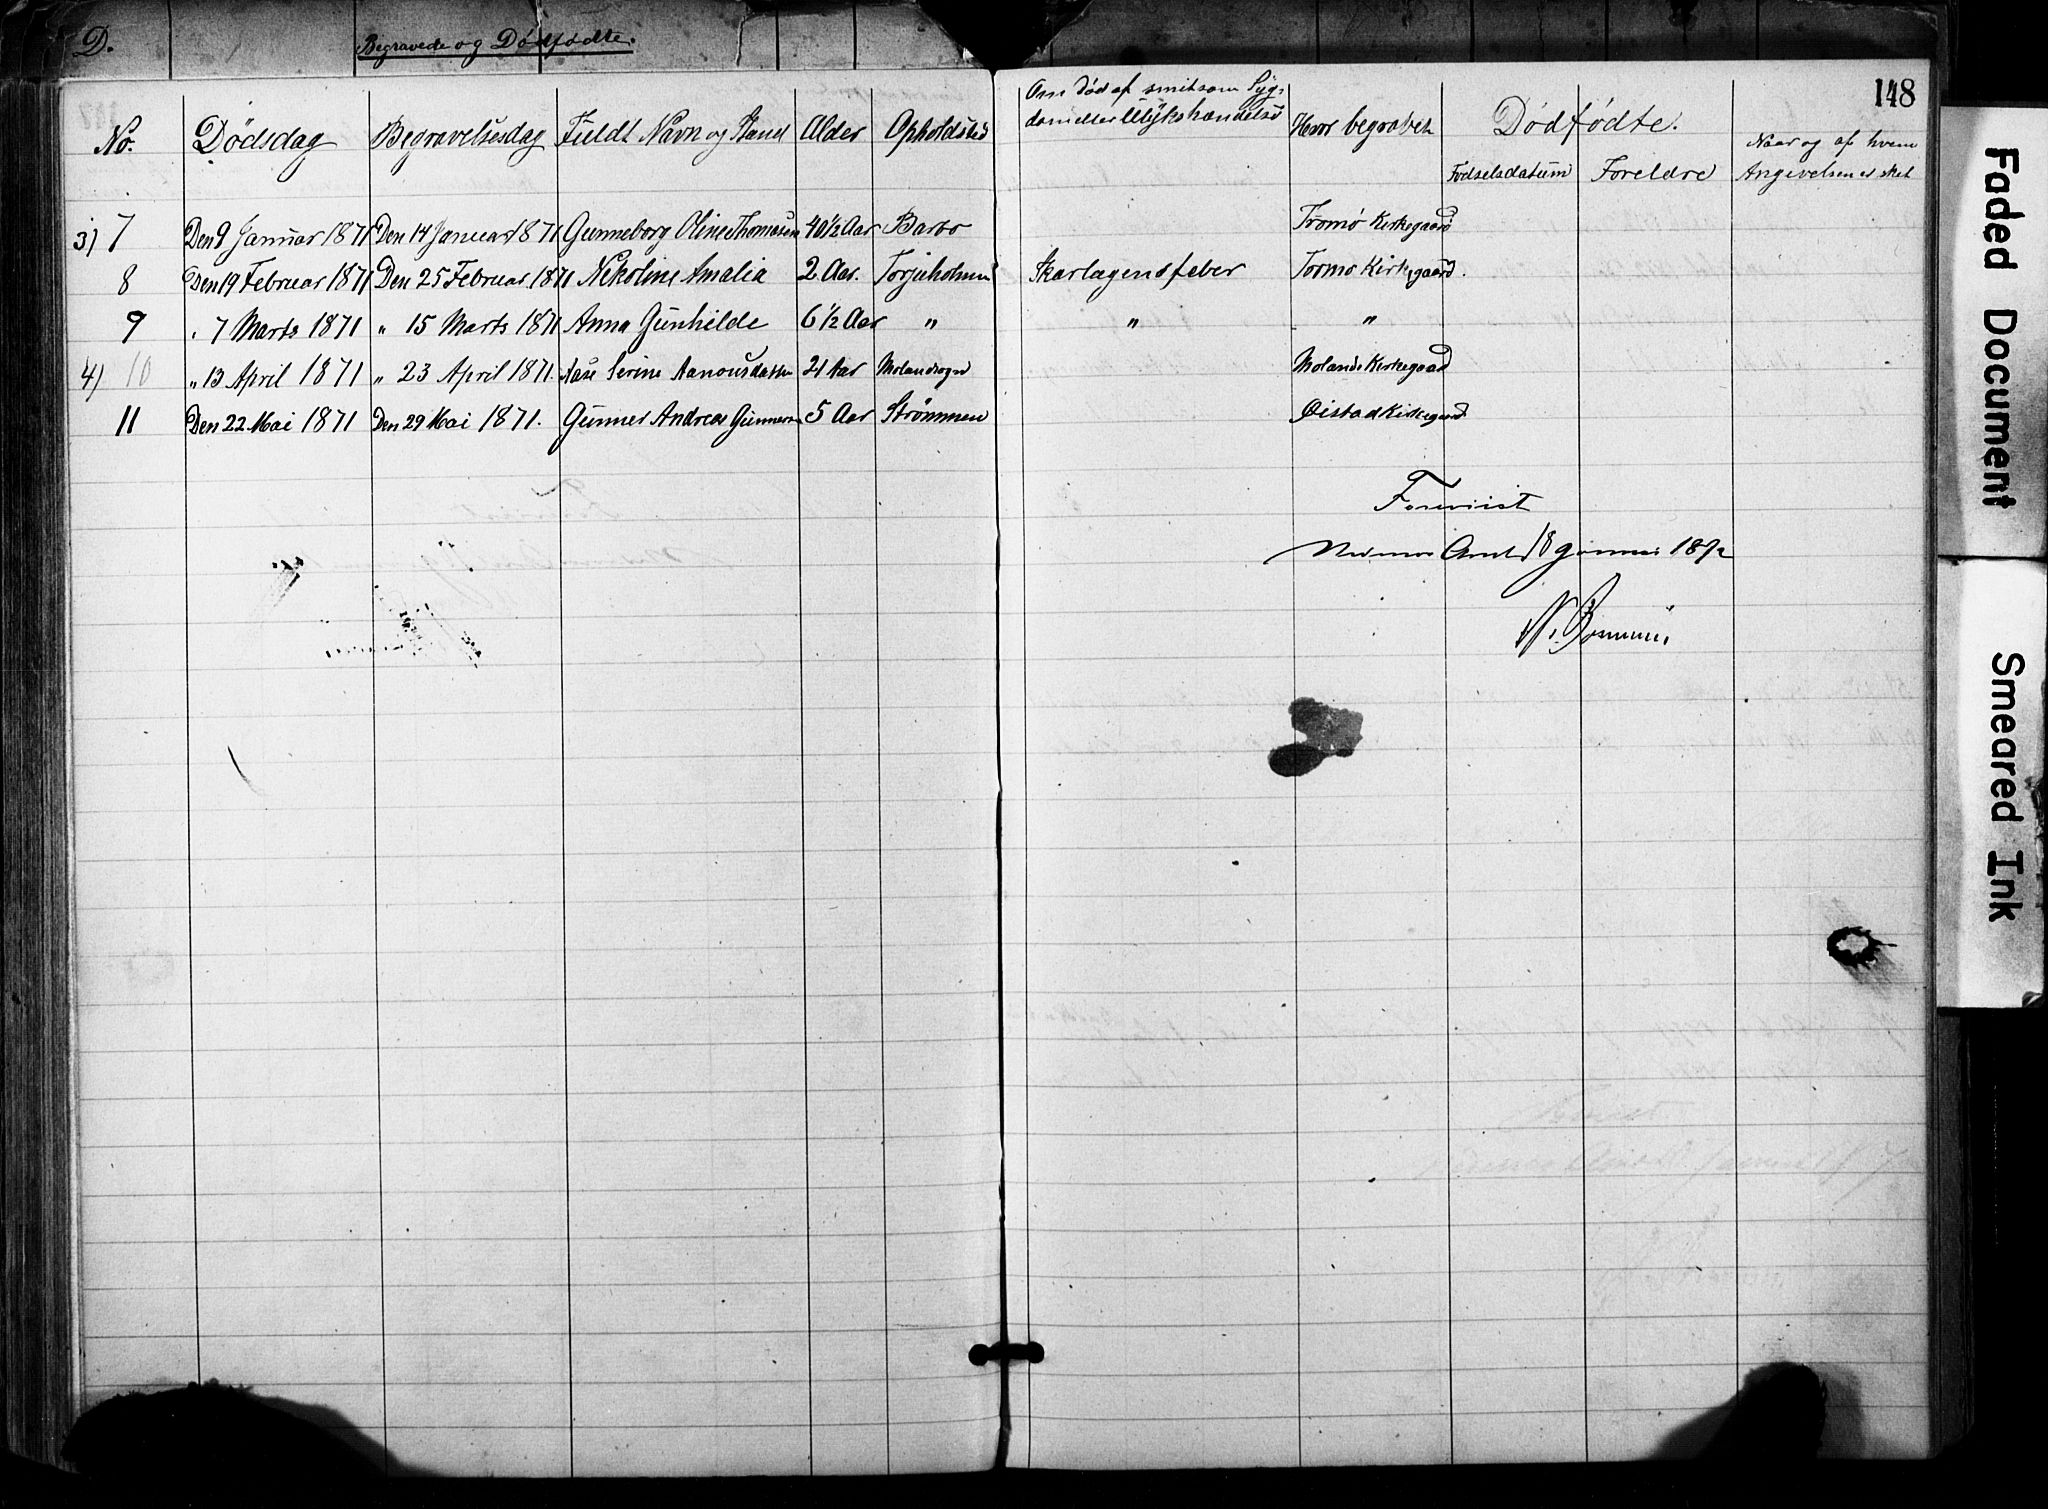 D. Begravede og Dødfødte.
148
No. Dødsdag Begravelsesdag Fuldt Navn og Stand Alder Opholdsted Om død af smitsom Syg- dom eller Ulykshændelse Hvor begravet Dødfødte. Fødselsdatum Foreldre Naar og af hvem Angivelsen er sket
3) 7 Den 9 Januar 1871 Den 14 Januar 1871 Gunneborg Oline Thomasen 40 1/2 Aar Barbo Tromø Kirkegaard
8 Den 19 Februar 1871 Den 25 Februar 1871 Nekoline Amalia 2 Aar. Torjusholmen Skarlagensfeber Tromø Kirkegaard.
9 " 7 Marts 1871 " 15 Marts 1871 Anna Gunhilde 6 1/2 Aar " " "
4) 10 " 13 April 1871 " 23 April 1871. Aase Serine Aanonsdatter 21 Aar Molandsogn Molands Kirkegaard
11 Den 22 Mai 1871 Den 29 Mai 1871. Gunner Andreas Gunnersen 5 Aar Strømmen Øistad Kirkegaard
Foreviist
Nedenæs Amt 18 Januar 1872
Faded Document
Smeared Ink